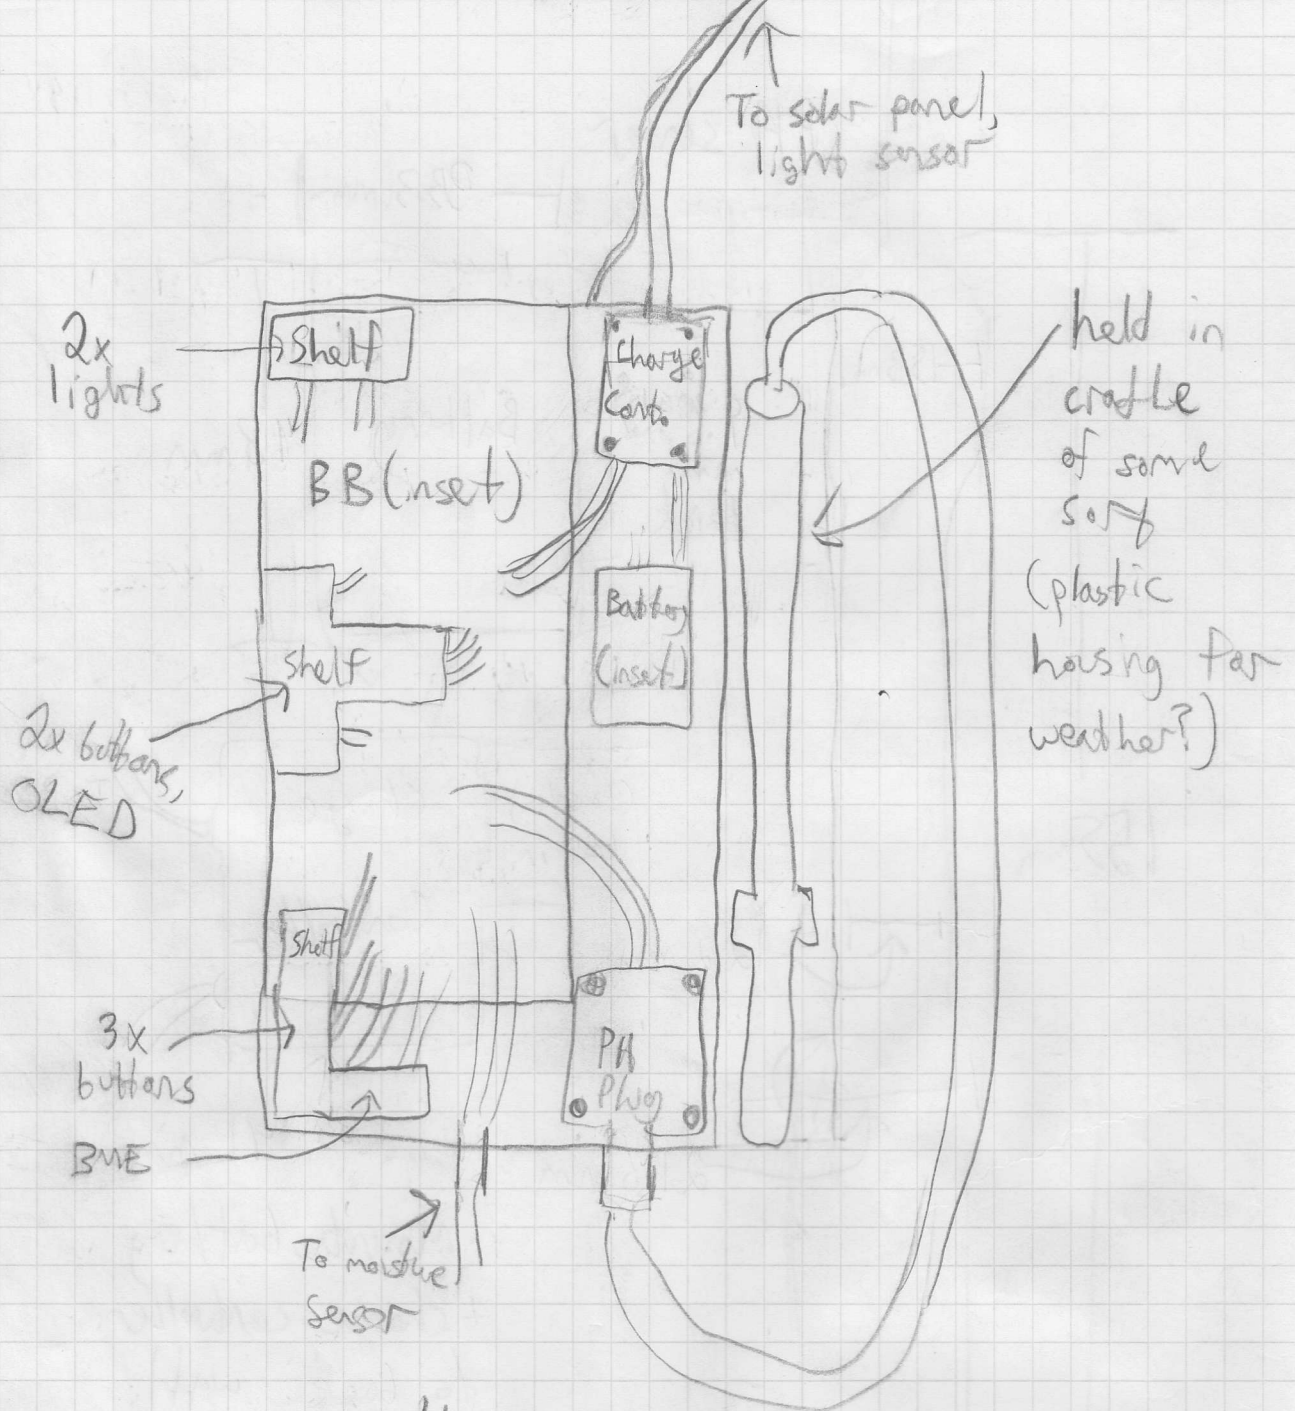 To solar panel,
light sensor
2x
lights
Shelf
Charge
Cont.
held in
cradle
of some
sort
(plastic
housing for
weather?)
BB (inset)
Battery
(inset)
Shelf
2x buttons,
OLED
Shelf
3x
buttons
BME
PH
Plug
To moisture
sensor